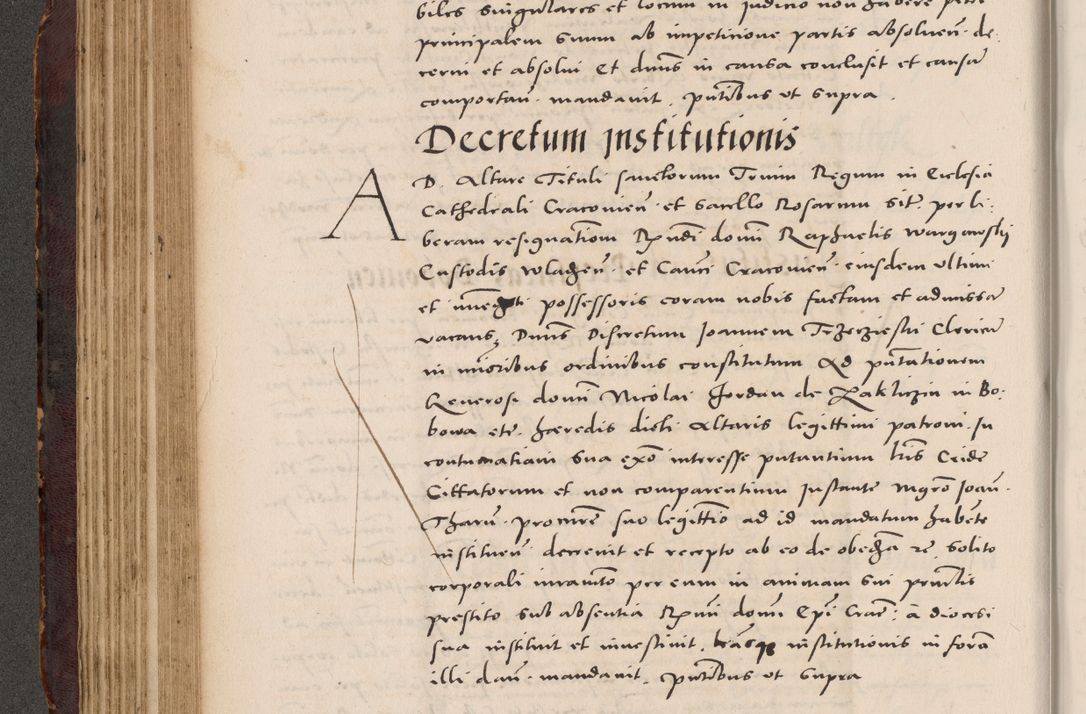 biles singulares et locum in judicio non habere petit
principalem suum ab impeticione partis absoluen. de-
cerni et absolui Et dnus in causa conclusit et causa
comportan. mandauit. pntibus ut supra.
Decretum institutionis
AD. Altare Tituli sanctorum Trium Regum in Ecclesia
Cathedrali Cracouien. et sacello Rosarum sit. per li-
beram resignationem Rndi domi Raphaelis Wargawski
Custodis Wlazen. et Canci Cracouien. eiusdem ultimi
et possessoris coram nobis factam et admissa
vacans, Dnus Discretum Joannem Clericu
in minoribus ordinibus constitutum Ad pntationem
Generosi domi Nicolai Jordan de Zakliczin in Bo-
bowa etc. haeredis dicti Altaris legittimi patroni. In
contumatiam sua exo interesse putantium lris Eide
Cittatorum et non comparentium Instante mgro Joan.
procurre suo legittio ad id mandatum habete
instituen. decreuit et recepto ab eo de obedia re. solito
corporali iuramto per eum in animam sui princlis
prestito sub absentia Rmi domi Epi Crac. a diocesi
sua instituit et inuestiuit. institutionis in forā
illi dan. mandauit. pntibus ut supra